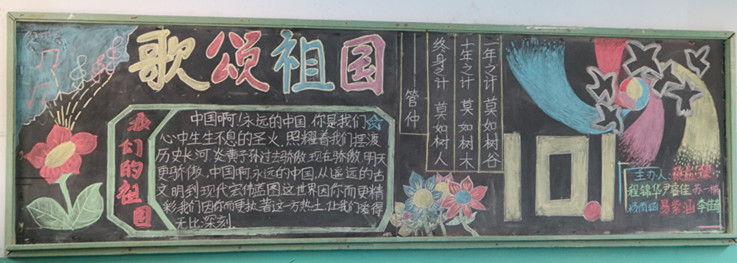 歌颂祖国
我们的祖国
中国啊!永远的中国,你是我们
心中生生不息的圣火,照耀着我们摆渡
历史长河,炎黄子孙过去骄傲,现在骄傲,明天
更骄傲,中国啊,永远的中国,从遥远的古
文明到现代宏伟蓝图这世界因你而更精
彩,我们因你而更执著这一方热土,让我们爱得
无比深刻.
一年之计 莫如树谷
十年之计 莫如树木
终身之计 莫如树人
管仲
10.1
主办人:
程锦华 尹睿佳 苏一桐
易紫涵